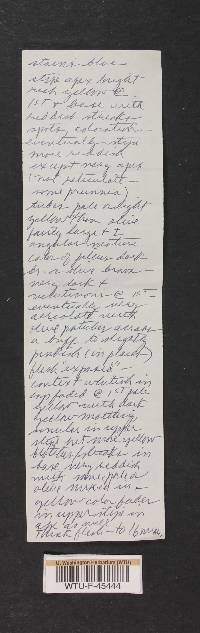 stains blue
stipe apex bright
rich yellow @
1st & base with
reddish streaks
spots, coloration
eventually stipe
more reddish
except very apex
(not reticulate
some pruinia)
tubes pale or light
yellow then olive
fairly large + I
angular mixture
color of pileus dark
br. or olive brown
very dark &
velutinous @ 1st
eventually very
areolate with
olive patches across
a buff to slightly
pinkish (in places)
flesh exposed
context whitish in
cap faded @ 1st pale
yellow with dark
yellow mottling
similar in upper
stipe but more yellow
blotches, streaks in
base very reddish
with more pale
olive mixed in
yellow color fades
in upper stipe in
age as well
thick flesh to 16 mm,
U. Washington Herbarium (WTU)
WTU-F-45444